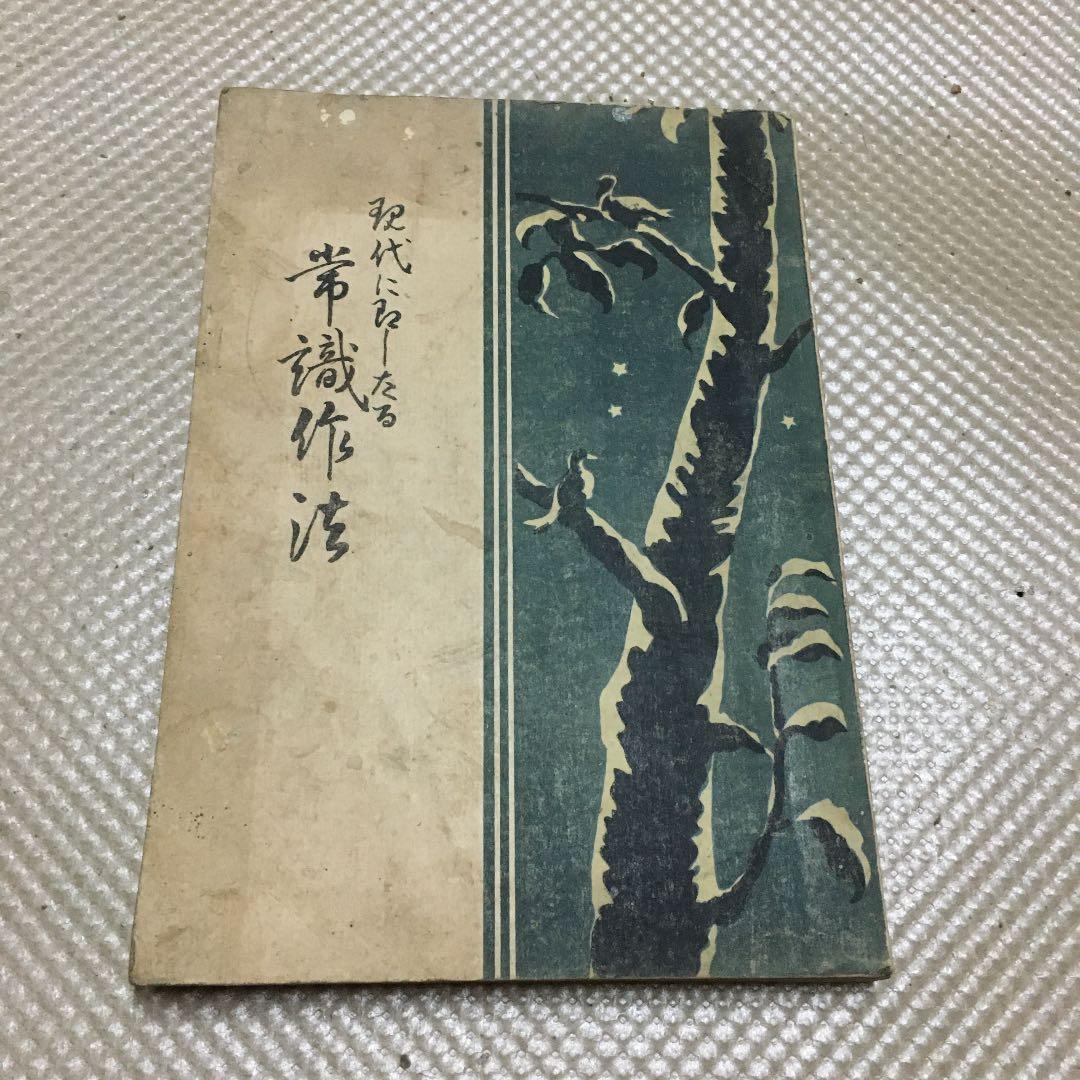 現代に即したる
常識作法